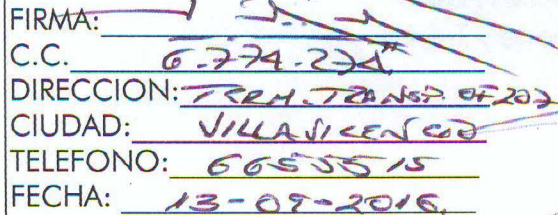 FIRMA:
C.C. 6.774.274
DIRECCION: TERM. TRANSP. OF 207
CIUDAD: VILLAVICENCIO
TELEFONO: 6655515
FECHA: 13-09-2016